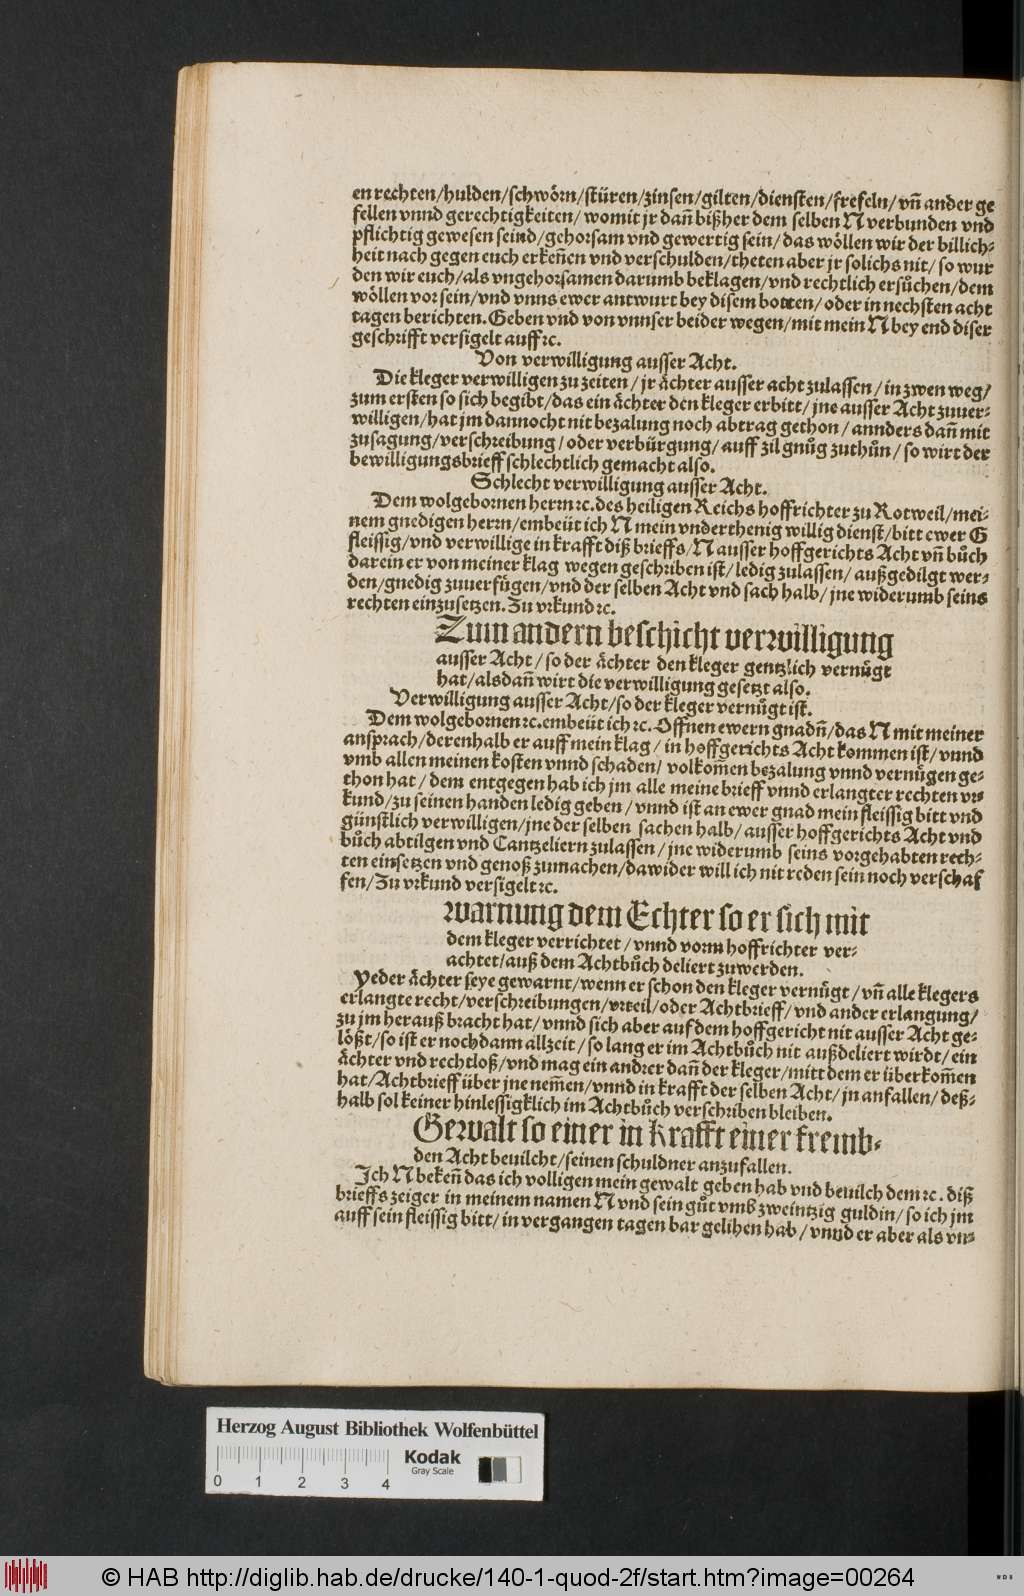 en rechten/hulden/schwörn/stüren/zinsen/gilten/diensten/frefeln/vñ ander ge
fellen vnnd gerechtigkeiten/ womit jr dañ bißher dem selben N verbunden vnd
pflichtig gewesen seind/gehorsam vnd gewertig sein/das wöllen wir der billich-
heit nach gegen euch erkeñen vnd verschulden/theten aber jr solichs nit/ so wur
den wir euch/als vngehorsamen darumb beklagen/vnd rechtlich ersůchen/dem
wöllen vor sein/vnd vnns ewer antwurt bey disem botten/ oder in nechsten acht
tagen berichten. Geben vnd von vnnser beider wegen/mit mein N bey end diser
geschrifft versigelt auff ꝛc.
Von verwilligung ausser Acht.
Die kleger verwilligen zu zeiten / jr ächter ausser acht zulassen / in zwen weg/
zum ersten so sich begibt/das ein ächter den kleger erbitt/ jne ausser Acht zuuer-
willigen/hat jm dannocht nit bezalung noch abtrag gethon / annders dañ mit
zusagung/verschreibung / oder verbürgung/ auff zil gnůg zuthůn / so wirt der
bewilligungsbrieff schlechtlich gemacht also.
Schlecht verwilligung ausser Acht.
Dem wolgebornen herrn ꝛc. des heiligen Reichs hoffrichter zu Rotweil/mei-
nem gnedigen herrn/embeüt ich N mein vnderthenig willig dienst/bitt ewer G
fleissig/vnd verwillige in krafft diß brieffs/N ausser hoffgerichts Acht vñ bůch
darein er von meiner klag wegen geschriben ist/ ledig zulassen/ außgedilgt wer-
den/gnedig zuuerfügen/vnd der selben Acht vnd sach halb/ jne widerumb seins
rechten einzusetzen. Zu vrkund ꝛc.
Zum andern beschicht verwilligung
ausser Acht / so der ächter den kleger gentzlich vernügt
hat/alsdañ wirt die verwilligung gesetzt also.
Verwilligung ausser Acht/so der kleger vernügt ist.
Dem wolgebornen ꝛc. embeüt ich ꝛc. Offnen ewern gnadñ/das N mit meiner
ansprach/derenhalb er auff mein klag / in hoffgerichts Acht kommen ist/ vnnd
vmb allen meinen kosten vnnd schaden/ volkom̃en bezalung vnnd vernügen ge-
thon hat / dem entgegen hab ich jm alle meine brieff vnnd erlangter rechten vr-
kund/zu seinen handen ledig geben / vnnd ist an ewer gnad mein fleissig bitt vnd
günstlich verwilligen/jne der selben sachen halb/ ausser hoffgerichts Acht vnd
bůch abtilgen vnd Cantzeliern zulassen / jne widerumb seins vorgehabten rech-
ten einsetzen vnd genoß zumachen/dawider will ich nit reden sein noch verschaf
fen/Zu vrkund versigelt ꝛc.
warnung dem Echter so er sich mit
dem kleger verrichtet / vnnd vorm hoffrichter ver-
achtet/auß dem Achtbůch deliert zuwerden.
Yeder ächter seye gewarnt/wenn er schon den kleger vernügt / vñ alle klegers
erlangte recht/verschreibungen/vrteil/oder Achtbrieff/ vnd ander erlangung/
zu jm herauß bracht hat/ vnnd sich aber auf dem hoffgericht nit ausser Acht ge-
lößt/so ist er nochdann allzeit / so lang er im Achtbůch nit außdeliert wirdt/ ein
ächter vnd rechtloß/vnd mag ein andrer dañ der kleger/mitt dem er überkom̃en
hat/Achtbrieff über jne nem̃en/vnnd in krafft der selben Acht/ jn anfallen/ deß-
halb sol keiner hinlessigklich im Achtbůch verschriben bleiben.
Gewalt so einer in krafft einer fremb-
den Acht beuilcht/seinen schuldner anzufallen.
Ich N bekeñ das ich volligen mein gewalt geben hab vnd beuilch dem ꝛc. diß
brieffs zeiger in meinem namen N vnd sein gůt vmb zweintzig guldin/ so ich jm
auff sein fleissig bitt/ in vergangen tagen bar gelihen hab / vnnd er aber als vn-
Herzog August Bibliothek Wolfenbüttel
Kodak
Gray Scale
0 1 2 3 4
© HAB http://diglib.hab.de/drucke/140-1-quod-2f/start.htm?image=00264